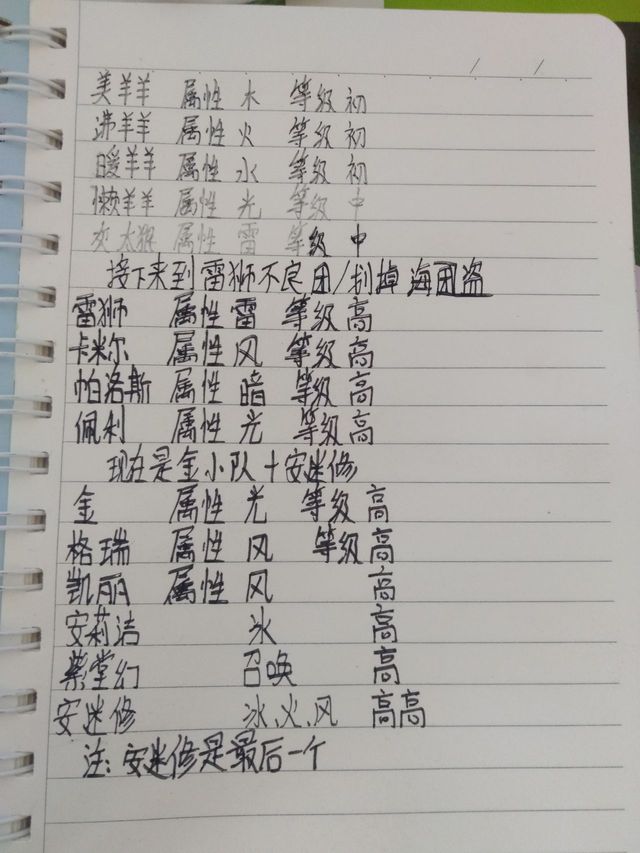 美羊羊 属性 木 等级 初
沸羊羊 属性 火 等级 初
暖羊羊 属性 水 等级 初
懒羊羊 属性 光 等级 中
灰太狼 属性 雷 等级 中
接下来到雷狮不良团/划掉海团盗
雷狮 属性 雷 等级 高
卡米尔 属性 风 等级 高
帕洛斯 属性 暗 等级 高
佩利 属性 光 等级 高
现在是金小队+安迷修
金 属性 光 等级 高
格瑞 属性 风 等级 高
凯丽 属性 风 高
安莉洁 冰 高
紫堂幻 召唤 高
安迷修 冰、火、风 高高
注:安迷修是最后一个